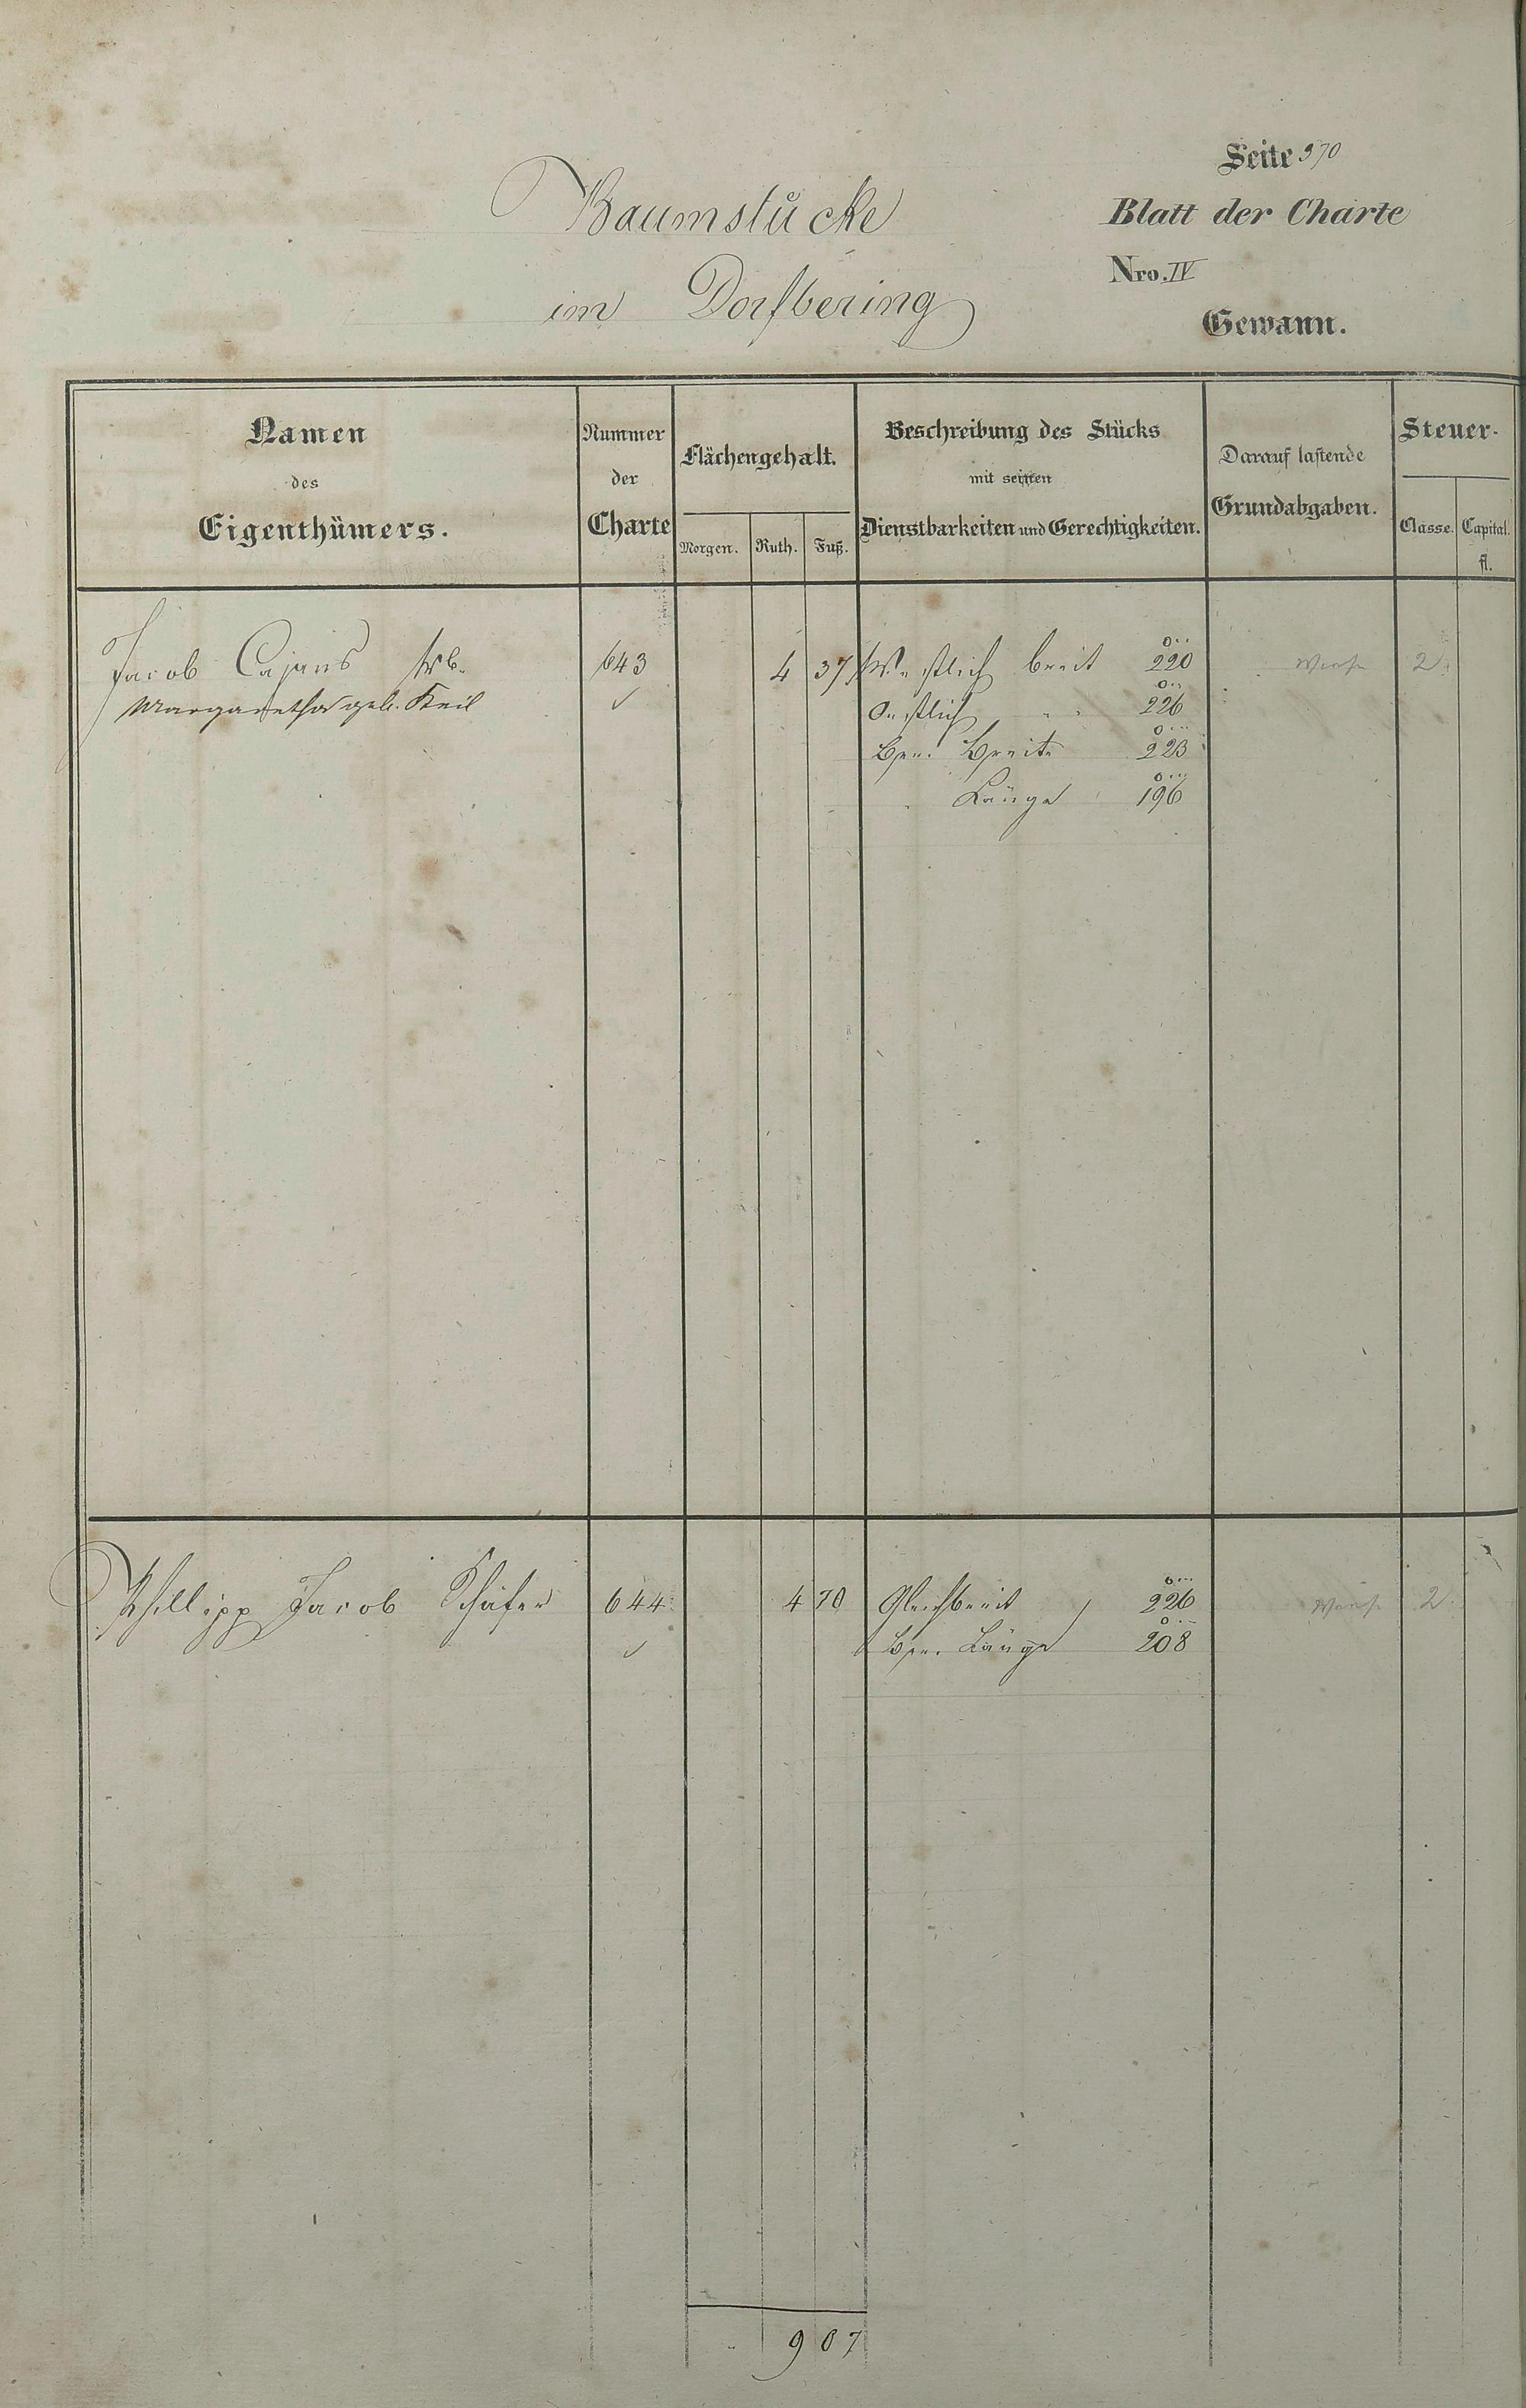 Seite 370
Baumstücke
Blatt der Charte
im Dorfbering
Nro. IV
Gewann.
Namen
des
Eigenthümers.
Nummer
der
Charte
Flächengehalt.
Morgen. Ruth. Fuß.
Beschreibung des Stücks
mit seinen
Dienstbarkeiten und Gerechtigkeiten.
Darauf lastende
Grundabgaben.
Steuer-
Classe. Capital.
fl.
Jacob Cajus 643 4 37 Westlich breit 220 Wiese 2
Margaretha geb. Keil Oestlich " " 226
Breite 223
Länge 196
Phillipp Jacob Schäfer 644 4 70 Gleichbreit 226 Wiese 2
Länge 208
9 07